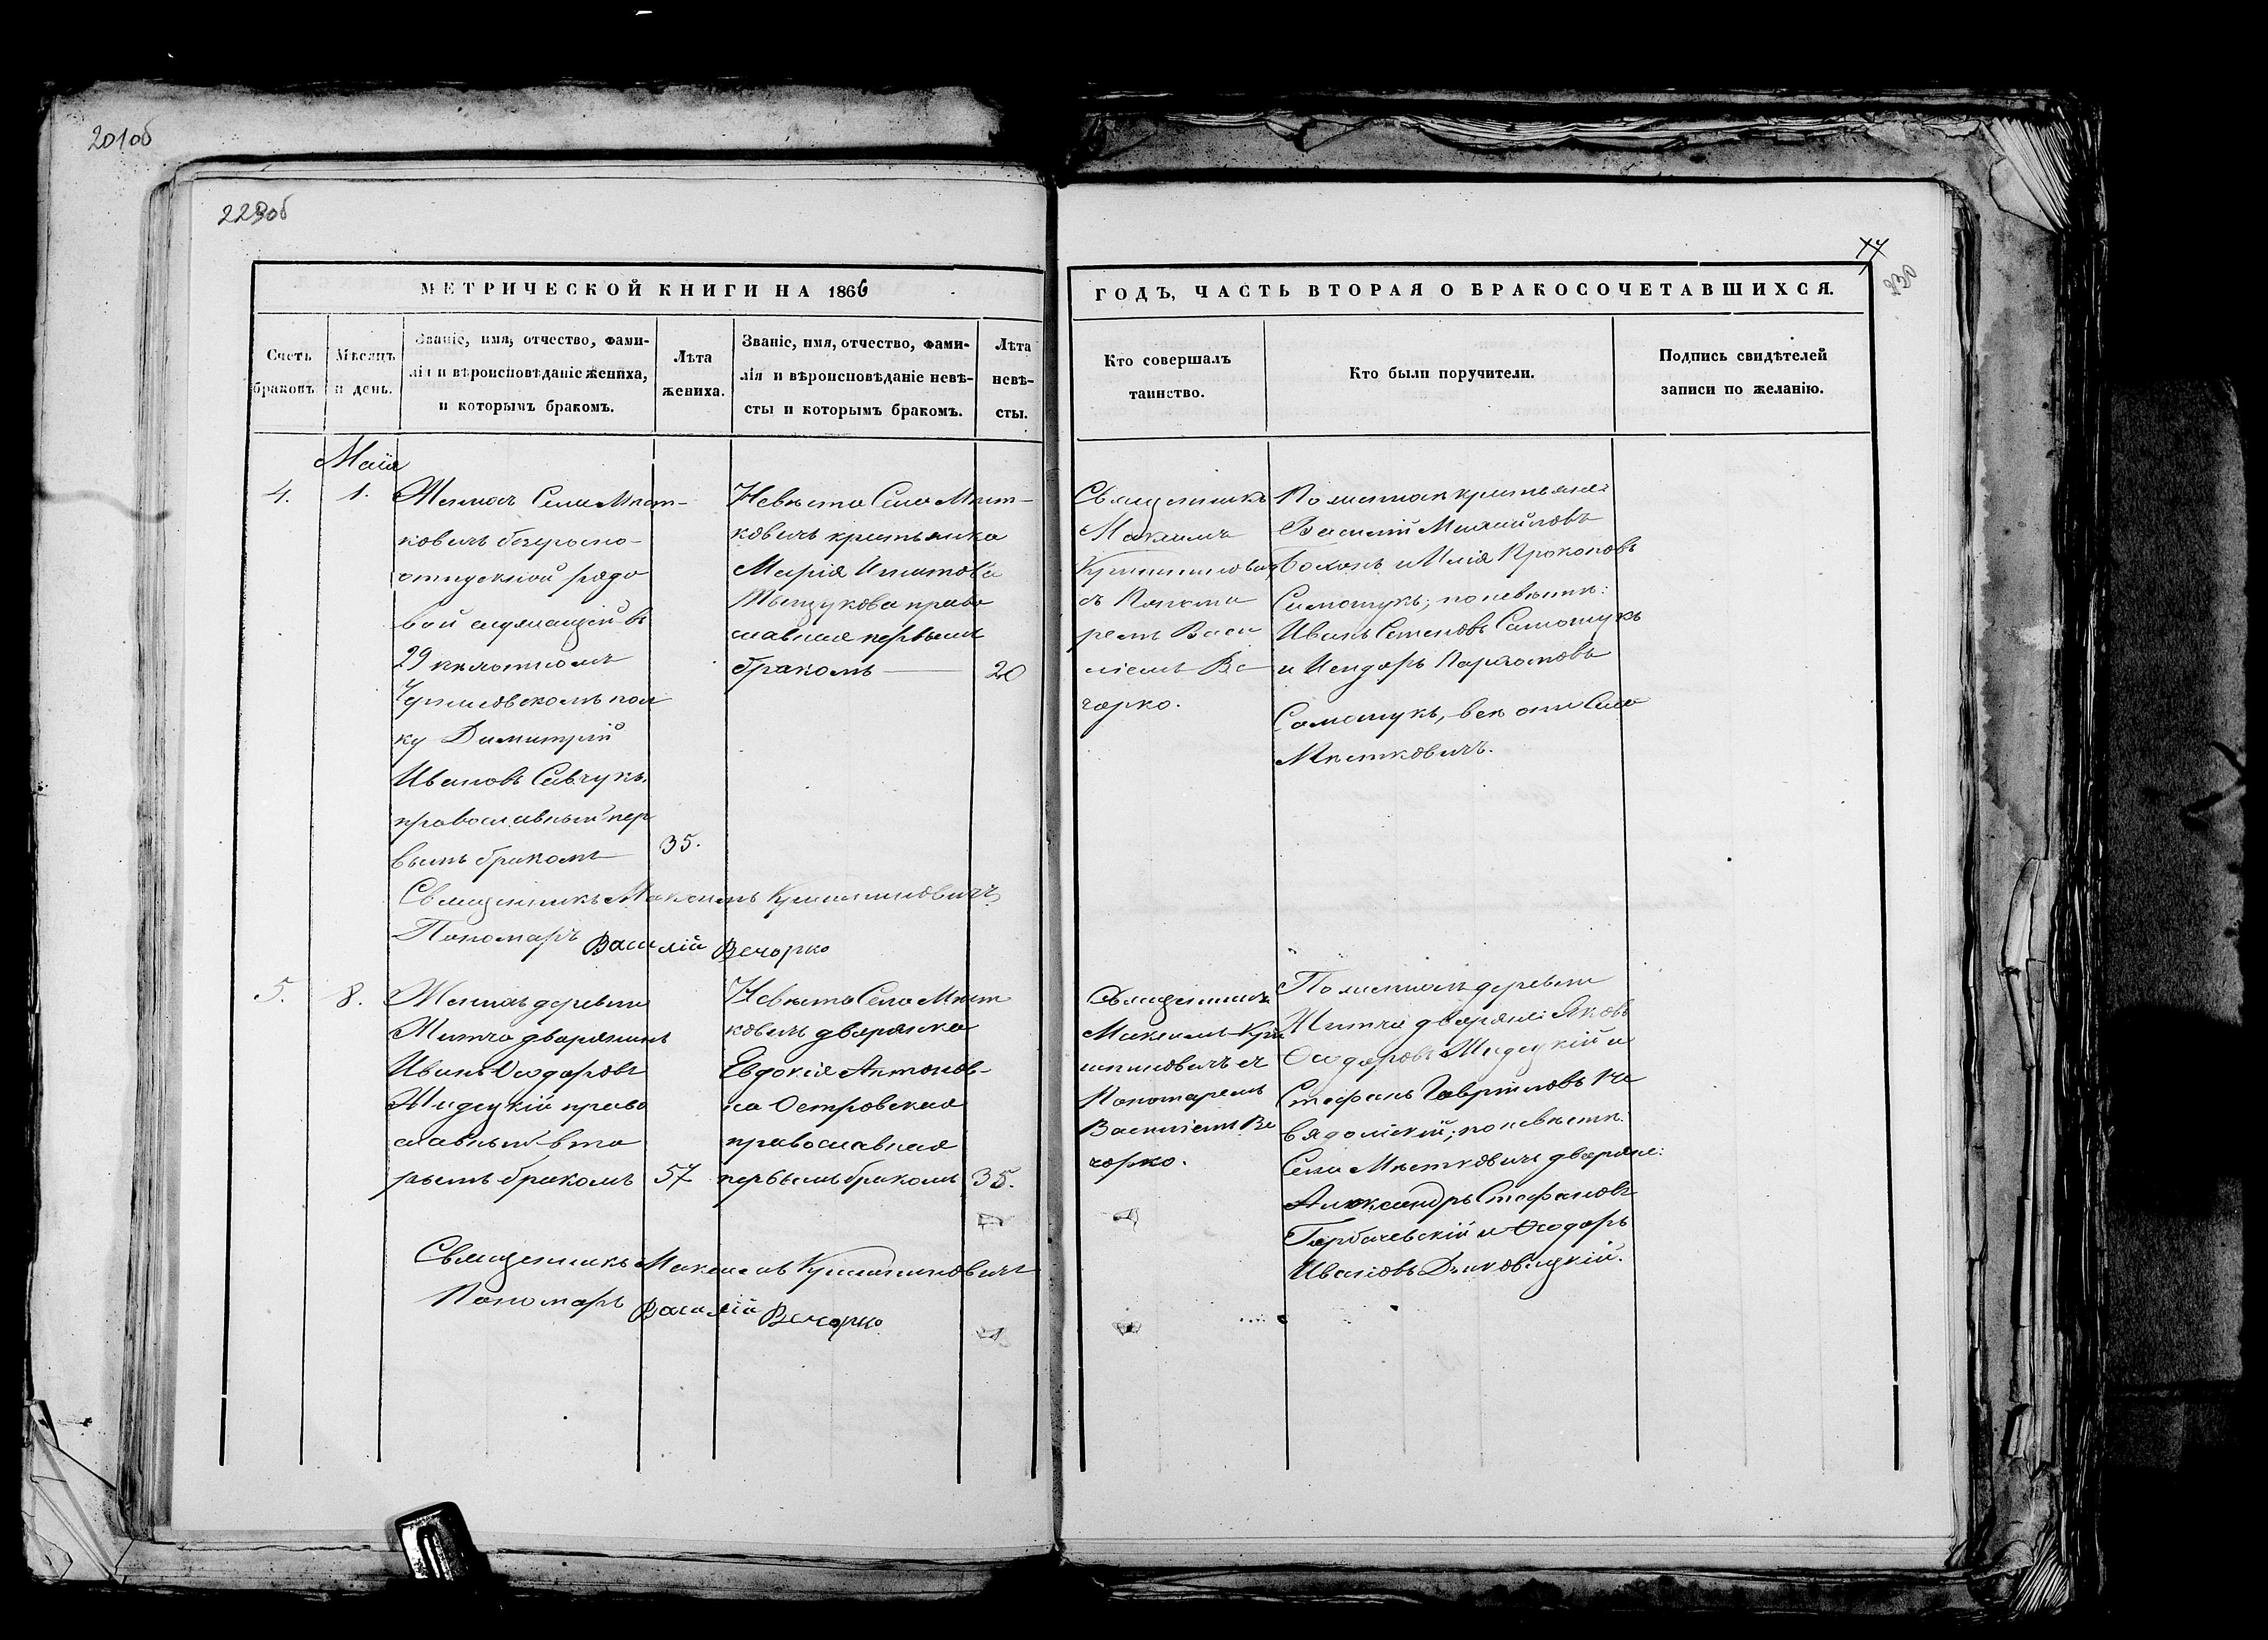 201об
229об
МЕТРИЧЕСКОЙ КНИГИ НА 1866
Счетъ
браковъ.
Мѣсяцъ
и день.
Званіе, имя, отчество, фами-
лія и вѣроисповѣданіе жениха,
и которымъ бракомъ.
Лѣта
жениха.
Званіе, имя, отчество, фами-
лія и вѣроисповѣданіе невѣ-
сты и которымъ бракомъ.
Лѣта
невѣ-
сты.
Маія
4.
1.
Женихъ Села Мѣст-
ковичъ безсрочно-
отпускной рядо
вой служащій въ
29 пѣхотномъ
Черниговскомъ пол
ку Димитрій
Ивановъ Савчукъ
православный пер
вымъ бракомъ
35.
Невѣста Села Мѣст-
ковичъ крестьянка
Марія Игнатова
право
славная первымъ
бракомъ
20
Священникъ Максимъ
Пономарь Василій Вечорко
5.
8.
Женихъ деревни
дворянинъ
Иванъ Ѳеодоровъ
право
славный вто
рымъ бракомъ
57
Невѣста Села Мѣст
ковичъ дворянка
Евдокія Антонов-
на Островская
православная
первымъ бракомъ
35.
Священникъ Максимъ
Пономарь Василій Вечорко
ГОДЪ, ЧАСТЬ ВТОРАЯ О БРАКОСОЧЕТАВШИХСЯ.
230
Кто совершалъ
таинство.
Кто были поручители.
Подпись свидѣтелей
записи по желанію.
Священникъ
Максимъ
съ Понома
ремъ Васи
ліемъ Ве
чорко.
По женихѣ крестьяне:
Василій Михайловъ
и Илія Прокоповъ
Самощукъ; по невѣстѣ:
Иванъ Семеновъ Самощукъ
и Исидоръ Пархомовъ
Самощукъ, всѣ они Села
Мѣстковичъ.
Священникъ
Максимъ
съ
Пономаремъ
Василіемъ Ве
чорко.
По женихѣ деревни
дворяне: Яковъ
Ѳеодоровъ и
Стефанъ Гавріиловъ
по невѣстѣ:
Села Мѣстковичъ дворяне:
Александръ Стефановъ
Горбачевскій и Ѳеодоръ
Ивановъ Диковицкій.